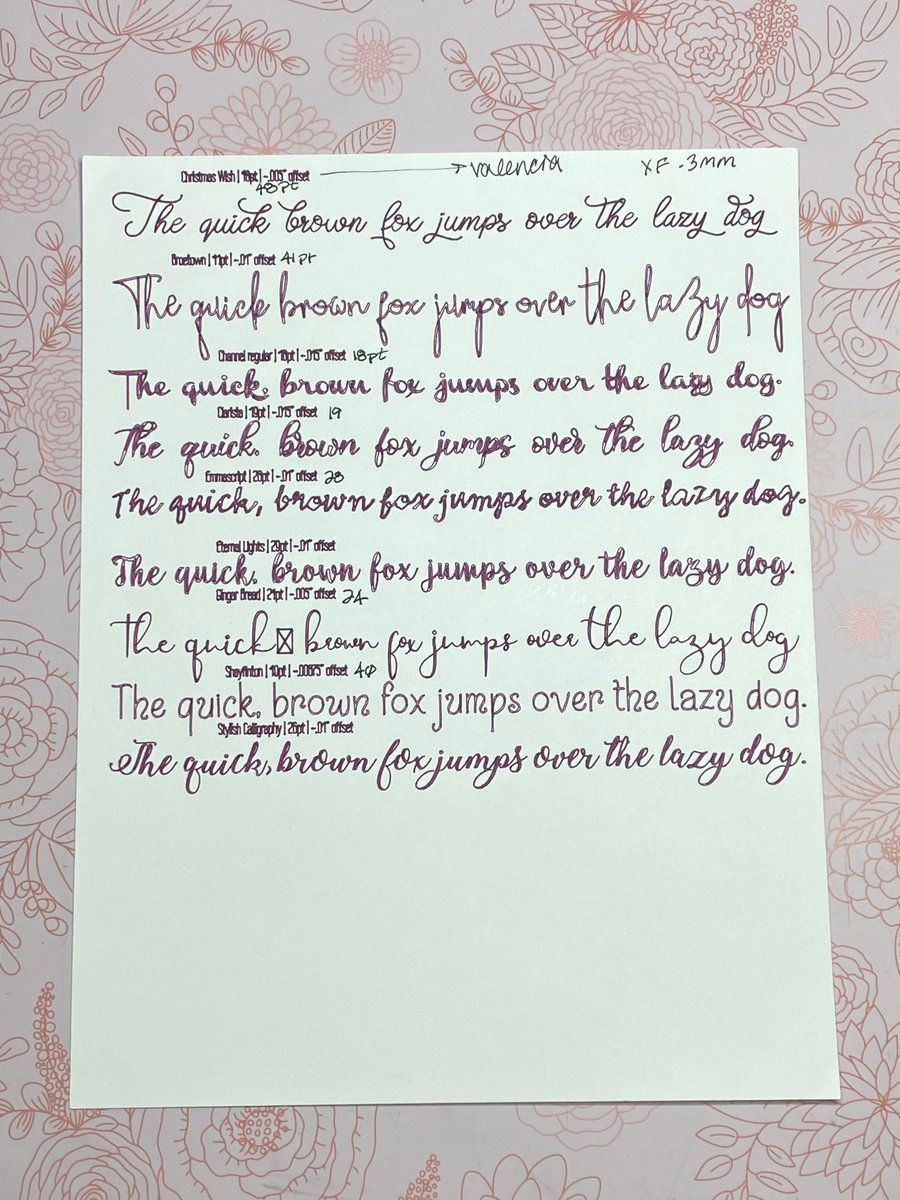 Christmas Wish | 18pt | -.005" offset → valencia XF .3mm
48pt
The quick brown fox jumps over the lazy dog
Braetown | 11pt | -.01" offset 41pt
The quick brown fox jumps over the lazy dog
Channel regular | 18pt | -.015" offset 18pt
The quick. brown fox jumps over the lazy dog.
Clarista | 19pt | -.015" offset 19
The quick. brown fox jumps over the lazy dog.
Emmascript | 28pt | -.01" offset 28
The quick, brown fox jumps over the lazy dog.
Eternal Lights | 29pt | -.01" offset
The quick. brown fox jumps over the lazy dog.
Ginger Bread | 24pt | -.005" offset 24
The quick brown fox jumps over the lazy dog
offset 40
The quick, brown fox jumps over the lazy dog.
Stylish Calligraphy | 26pt | -.01" offset
The quick, brown fox jumps over the lazy dog.